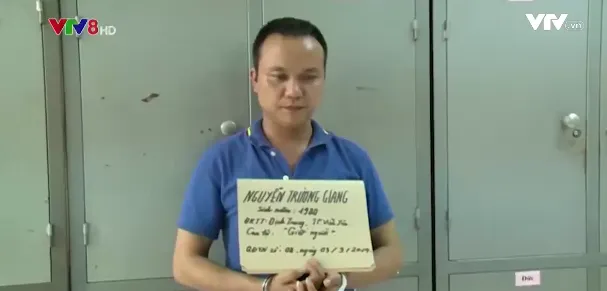 VTV8 HD
VTV.vn
NGUYỄN TRƯỜNG GIANG
Sinh năm: 1980
ĐKTT: Định Trung, TP Vĩnh Yên
Can tội: "Giết người"
QĐTN số: 02, ngày 03/3/